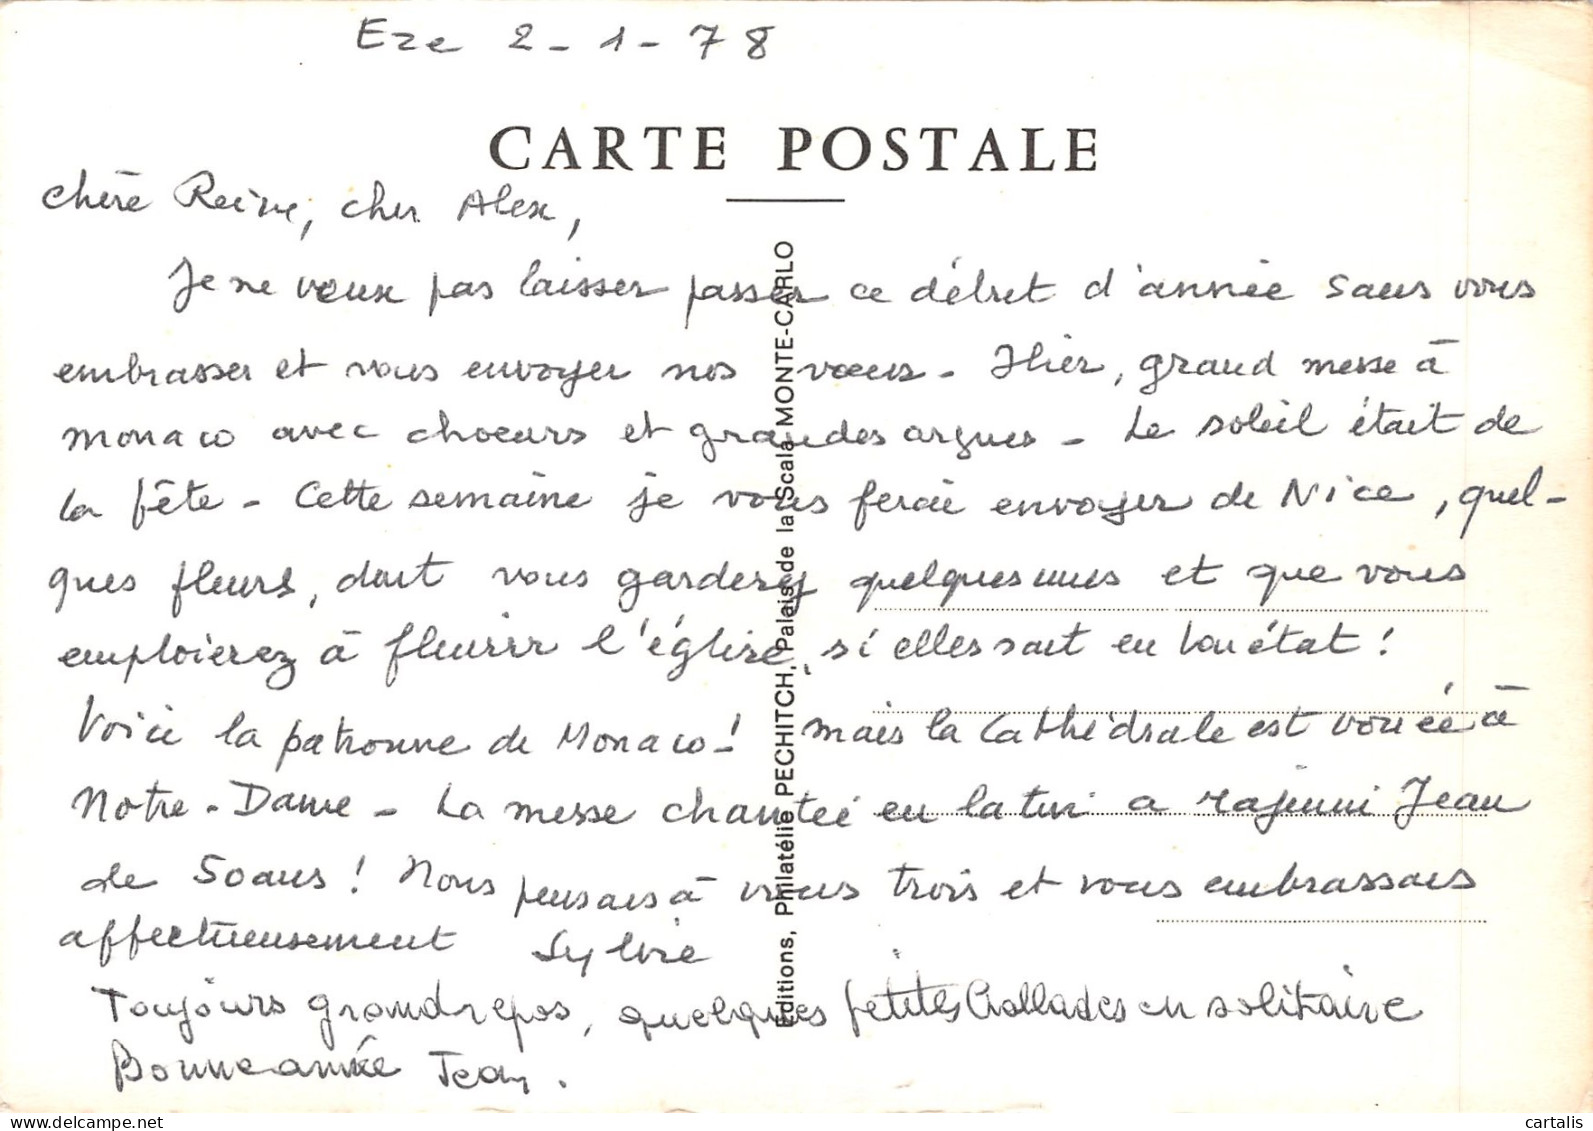 Eze 2-1-78
CARTE POSTALE
Chère Reine, cher Alex,
Je ne veux pas laisser passer ce début d'année sans vous
embrasser et vous envoyer nos voeux - Hier, grand messe à
Monaco avec choeurs et grandes orgues - Le soleil était de
la fête - Cette semaine je vous ferai envoyer de Nice, quel-
ques fleurs, dont vous garderez quelques unes et que vous
emploierez à fleurir l'église, si elles sont en bon état !
Voici la patronne de Monaco ! mais la Cathédrale est vouée à
Notre-Dame - La messe chantée en latin a rajeuni Jean
de 50 ans ! Nous pensons à vous trois et vous embrassons
affectueusement Sylvie
Toujours grand repos, quelques petites ballades en solitaire
Bonne année Jean.
Editions, Philatélie PECHITCH, Palais de la Scala MONTE-CARLO
delcampe.net
cartalis